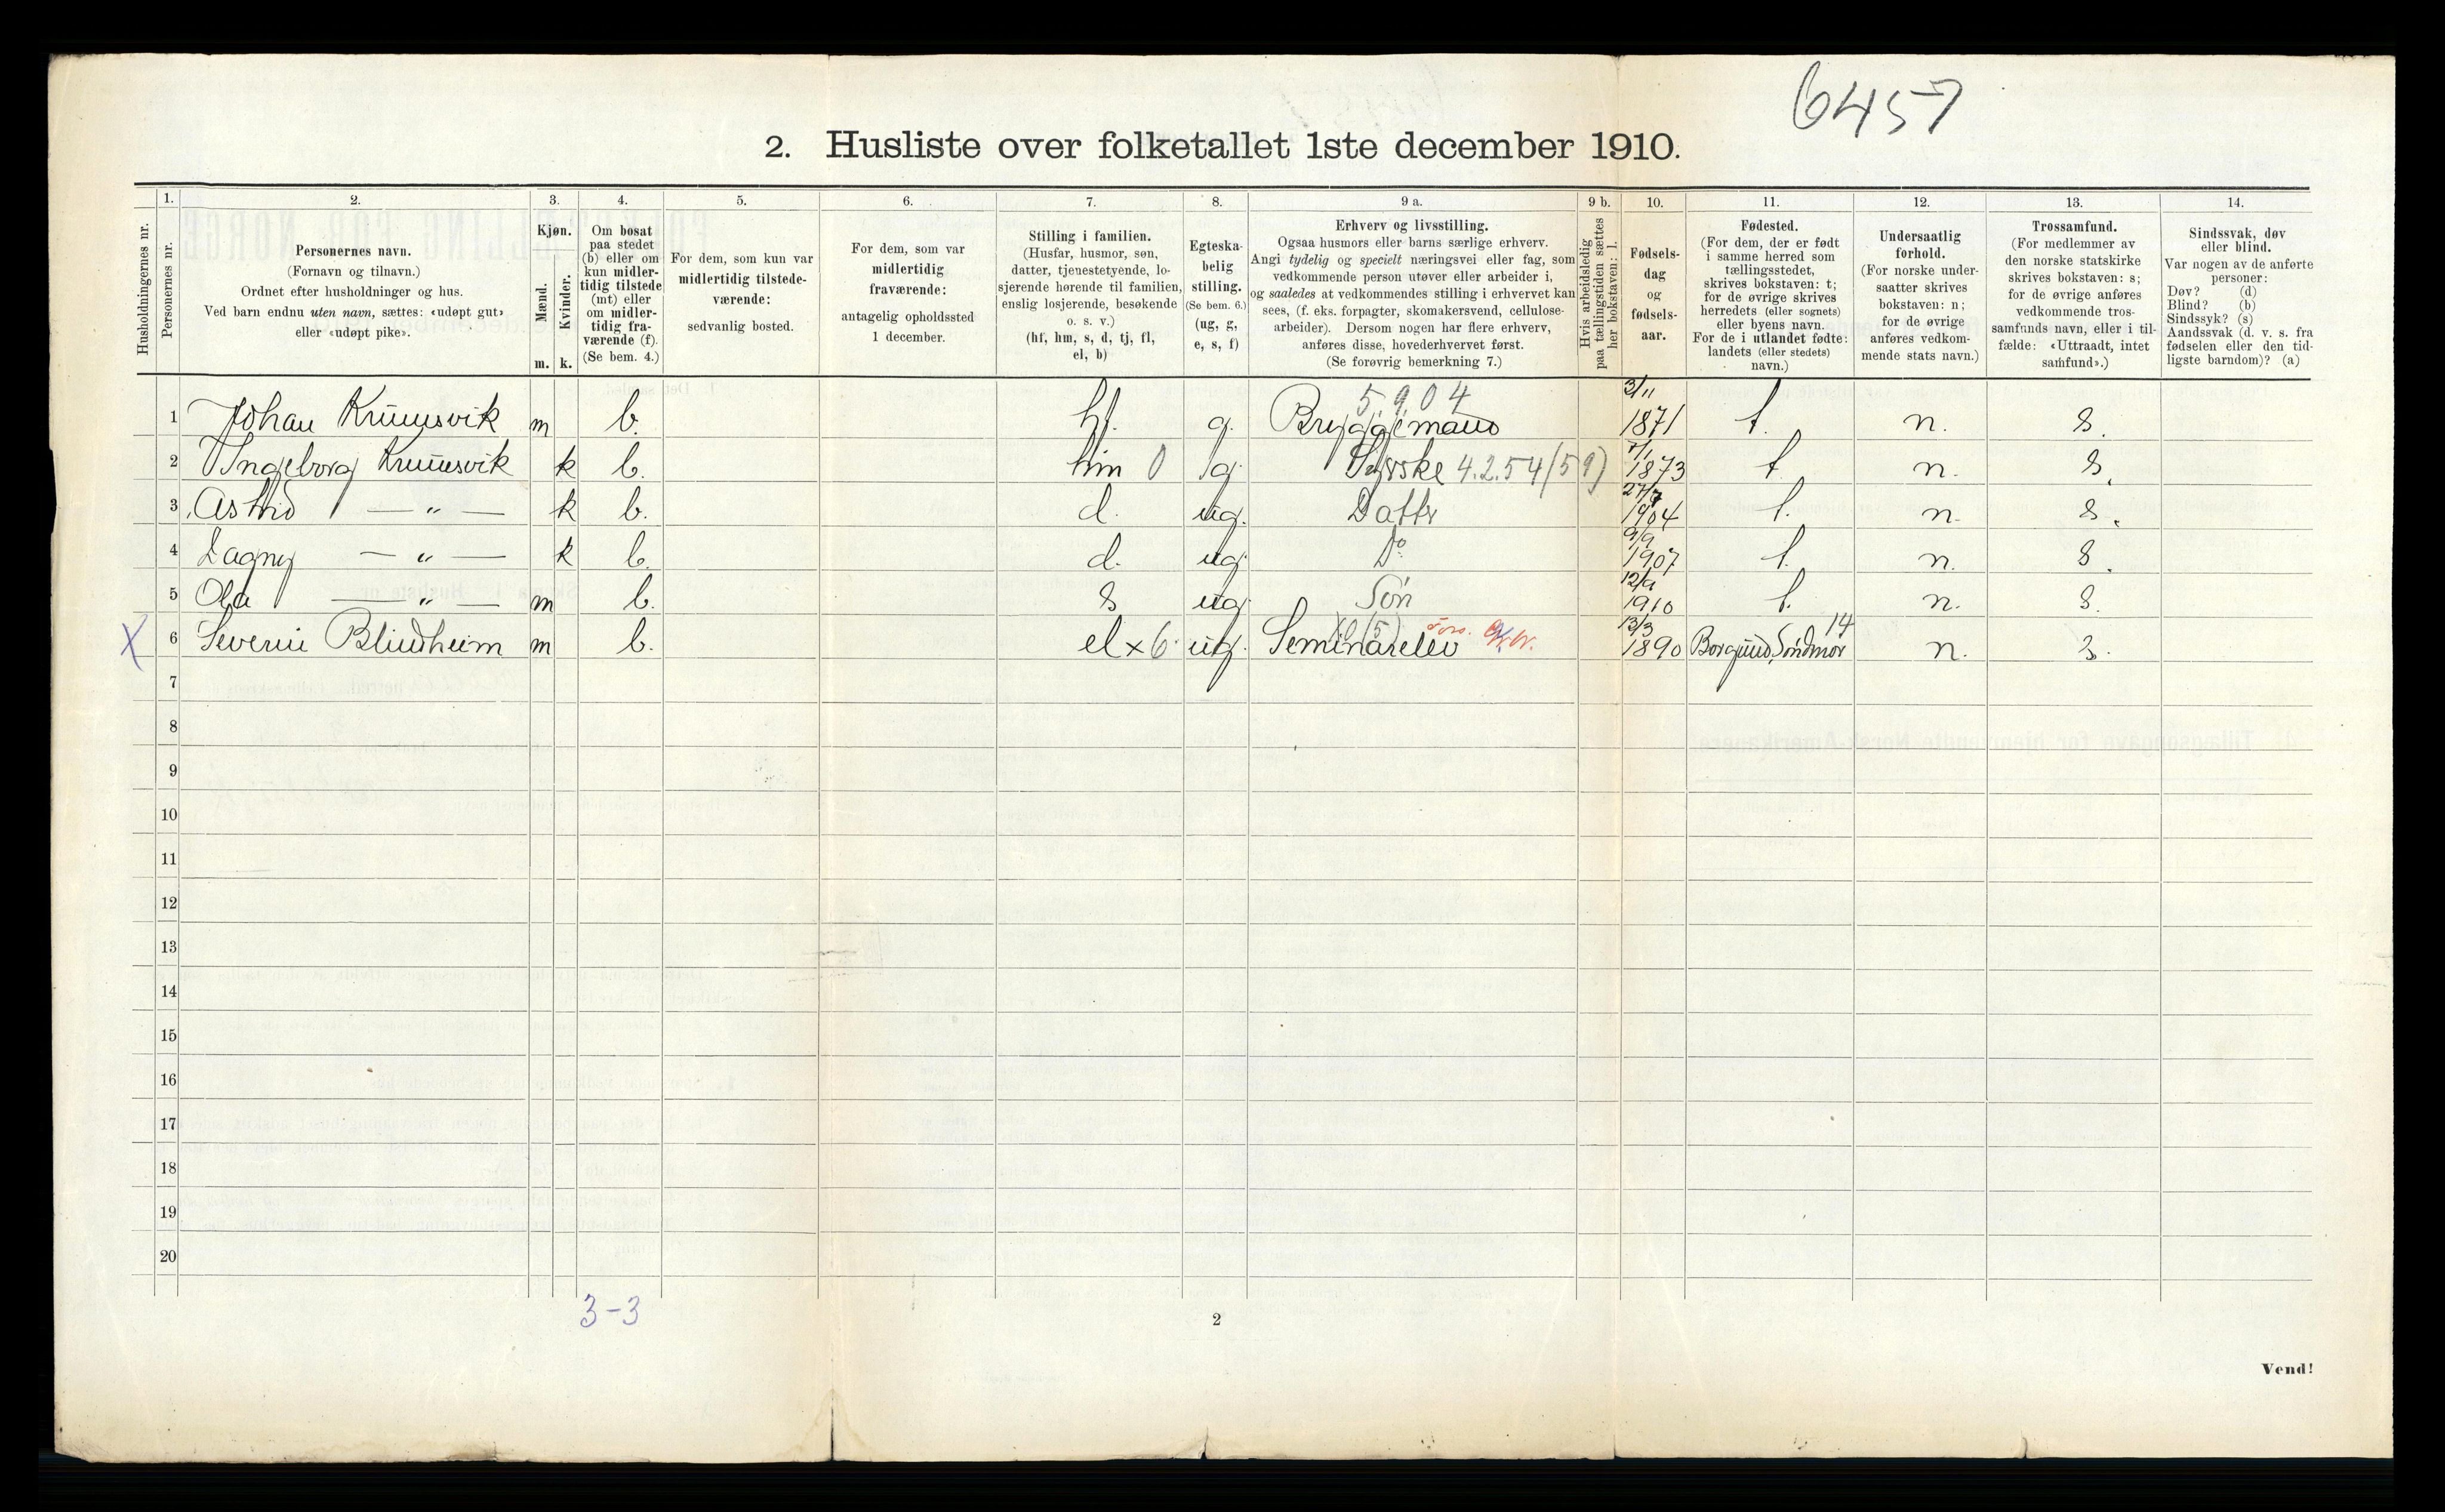 6457
2. Husliste over folketallet 1ste december 1910.
Husholdningernes nr.
1.
Personernes nr.
2.
Personernes navn.
(Fornavn og tilnavn.)
Ordnet efter husholdninger og hus.
Ved barn endnu uten navn, sættes: «udøpt gut»
eller «udøpt pike».
3.
Kjøn.
Mænd.
Kvinder.
m. k.
4.
Om bosat
paa stedet
(b) eller om
kun midler-
tidig tilstede
(mt) eller
om midler-
tidig fra-
værende (f).
(Se bem. 4.)
5.
For dem, som kun var
midlertidig tilstede-
værende:
sedvanlig bosted.
6.
For dem, som var
midlertidig
fraværende:
antagelig opholdssted
1 december.
7.
Stilling i familien.
(Husfar, husmor, søn,
datter, tjenestetyende, lo-
sjerende hørende til familien,
enslig losjerende, besøkende
o. s. v.)
(hf, hm, s, d, tj, fl,
el, b)
8.
Egteska-
belig
stilling.
(Se bem. 6.)
(ug, g,
e, s, f)
9 a.
Erhverv og livsstilling.
Ogsaa husmors eller barns særlige erhverv.
Angi tydelig og specielt næringsvei eller fag, som
vedkommende person utøver eller arbeider i,
og saaledes at vedkommendes stilling i erhvervet kan
sees, (f. eks. forpagter, skomakersvend, cellulose-
arbeider). Dersom nogen har flere erhverv,
anføres disse, hovederhvervet først.
(Se forøvrig bemerkning 7.)
9 b.
Hvis arbeidsledig
paa tællingstiden sættes
her bokstaven: l.
10.
Fødsels-
dag
og
fødsels-
aar.
11.
Fødested.
(For dem, der er født
i samme herred som
tællingsstedet,
skrives bokstaven: t;
for de øvrige skrives
herredets (eller sognets)
eller byens navn.
For de i utlandet fødte:
landets (eller stedets)
navn.)
12.
Undersaatlig
forhold.
(For norske under-
saatter skrives
bokstaven: n;
for de øvrige
anføres vedkom-
mende stats navn.)
13.
Trossamfund.
(For medlemmer av
den norske statskirke
skrives bokstaven: s;
for de øvrige anføres
vedkommende tros-
samfunds navn, eller i til-
fælde: «Uttraadt, intet
samfund».)
14.
Sindssvak, døv
eller blind.
Var nogen av de anførte
personer:
Døv? (d)
Blind? (b)
Sindssyk? (s)
Aandssvak (d. v. s. fra
fødselen eller den tid-
ligste barndom)? (a)
1 Johan Krumsvik m b. hf. g. Bryggemand 5.9.04 3/11 1871 t. n. s.
2 Ingeborg Krumsvik k b. hm 0 g. 4.2.54 (59) 1873 t n. s.
3 Astrid — „ — k b. d. ug. Datter 27/7 1904 t. n. s.
4 Dagny — „ — k b. d. ug. Do 9/9 1907 t. n. s.
5 Ola — „ — m b. s ug. Søn 12/9 1910 t. n. s.
X 6 Severin Blindheim m b. el x 6 ug. Seminarelev 13/3 1890 Borgund, Søndmør 14 n. s.
7
8
9
10
11
12
13
14
15
16
17
18
19
20
3-3
2
Vend!